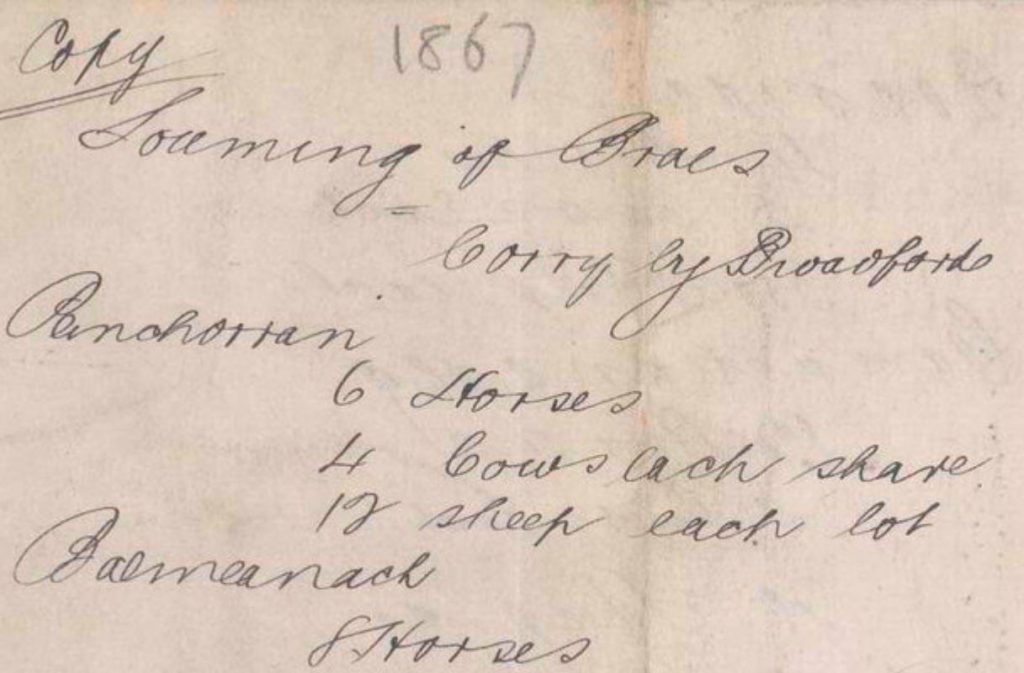 Copy
1867
Souming of Braes
Corry by Broadford
Penchorran
6 Horses
4 Cows each share.
12 sheep each lot
Balmeanach
8 Horses